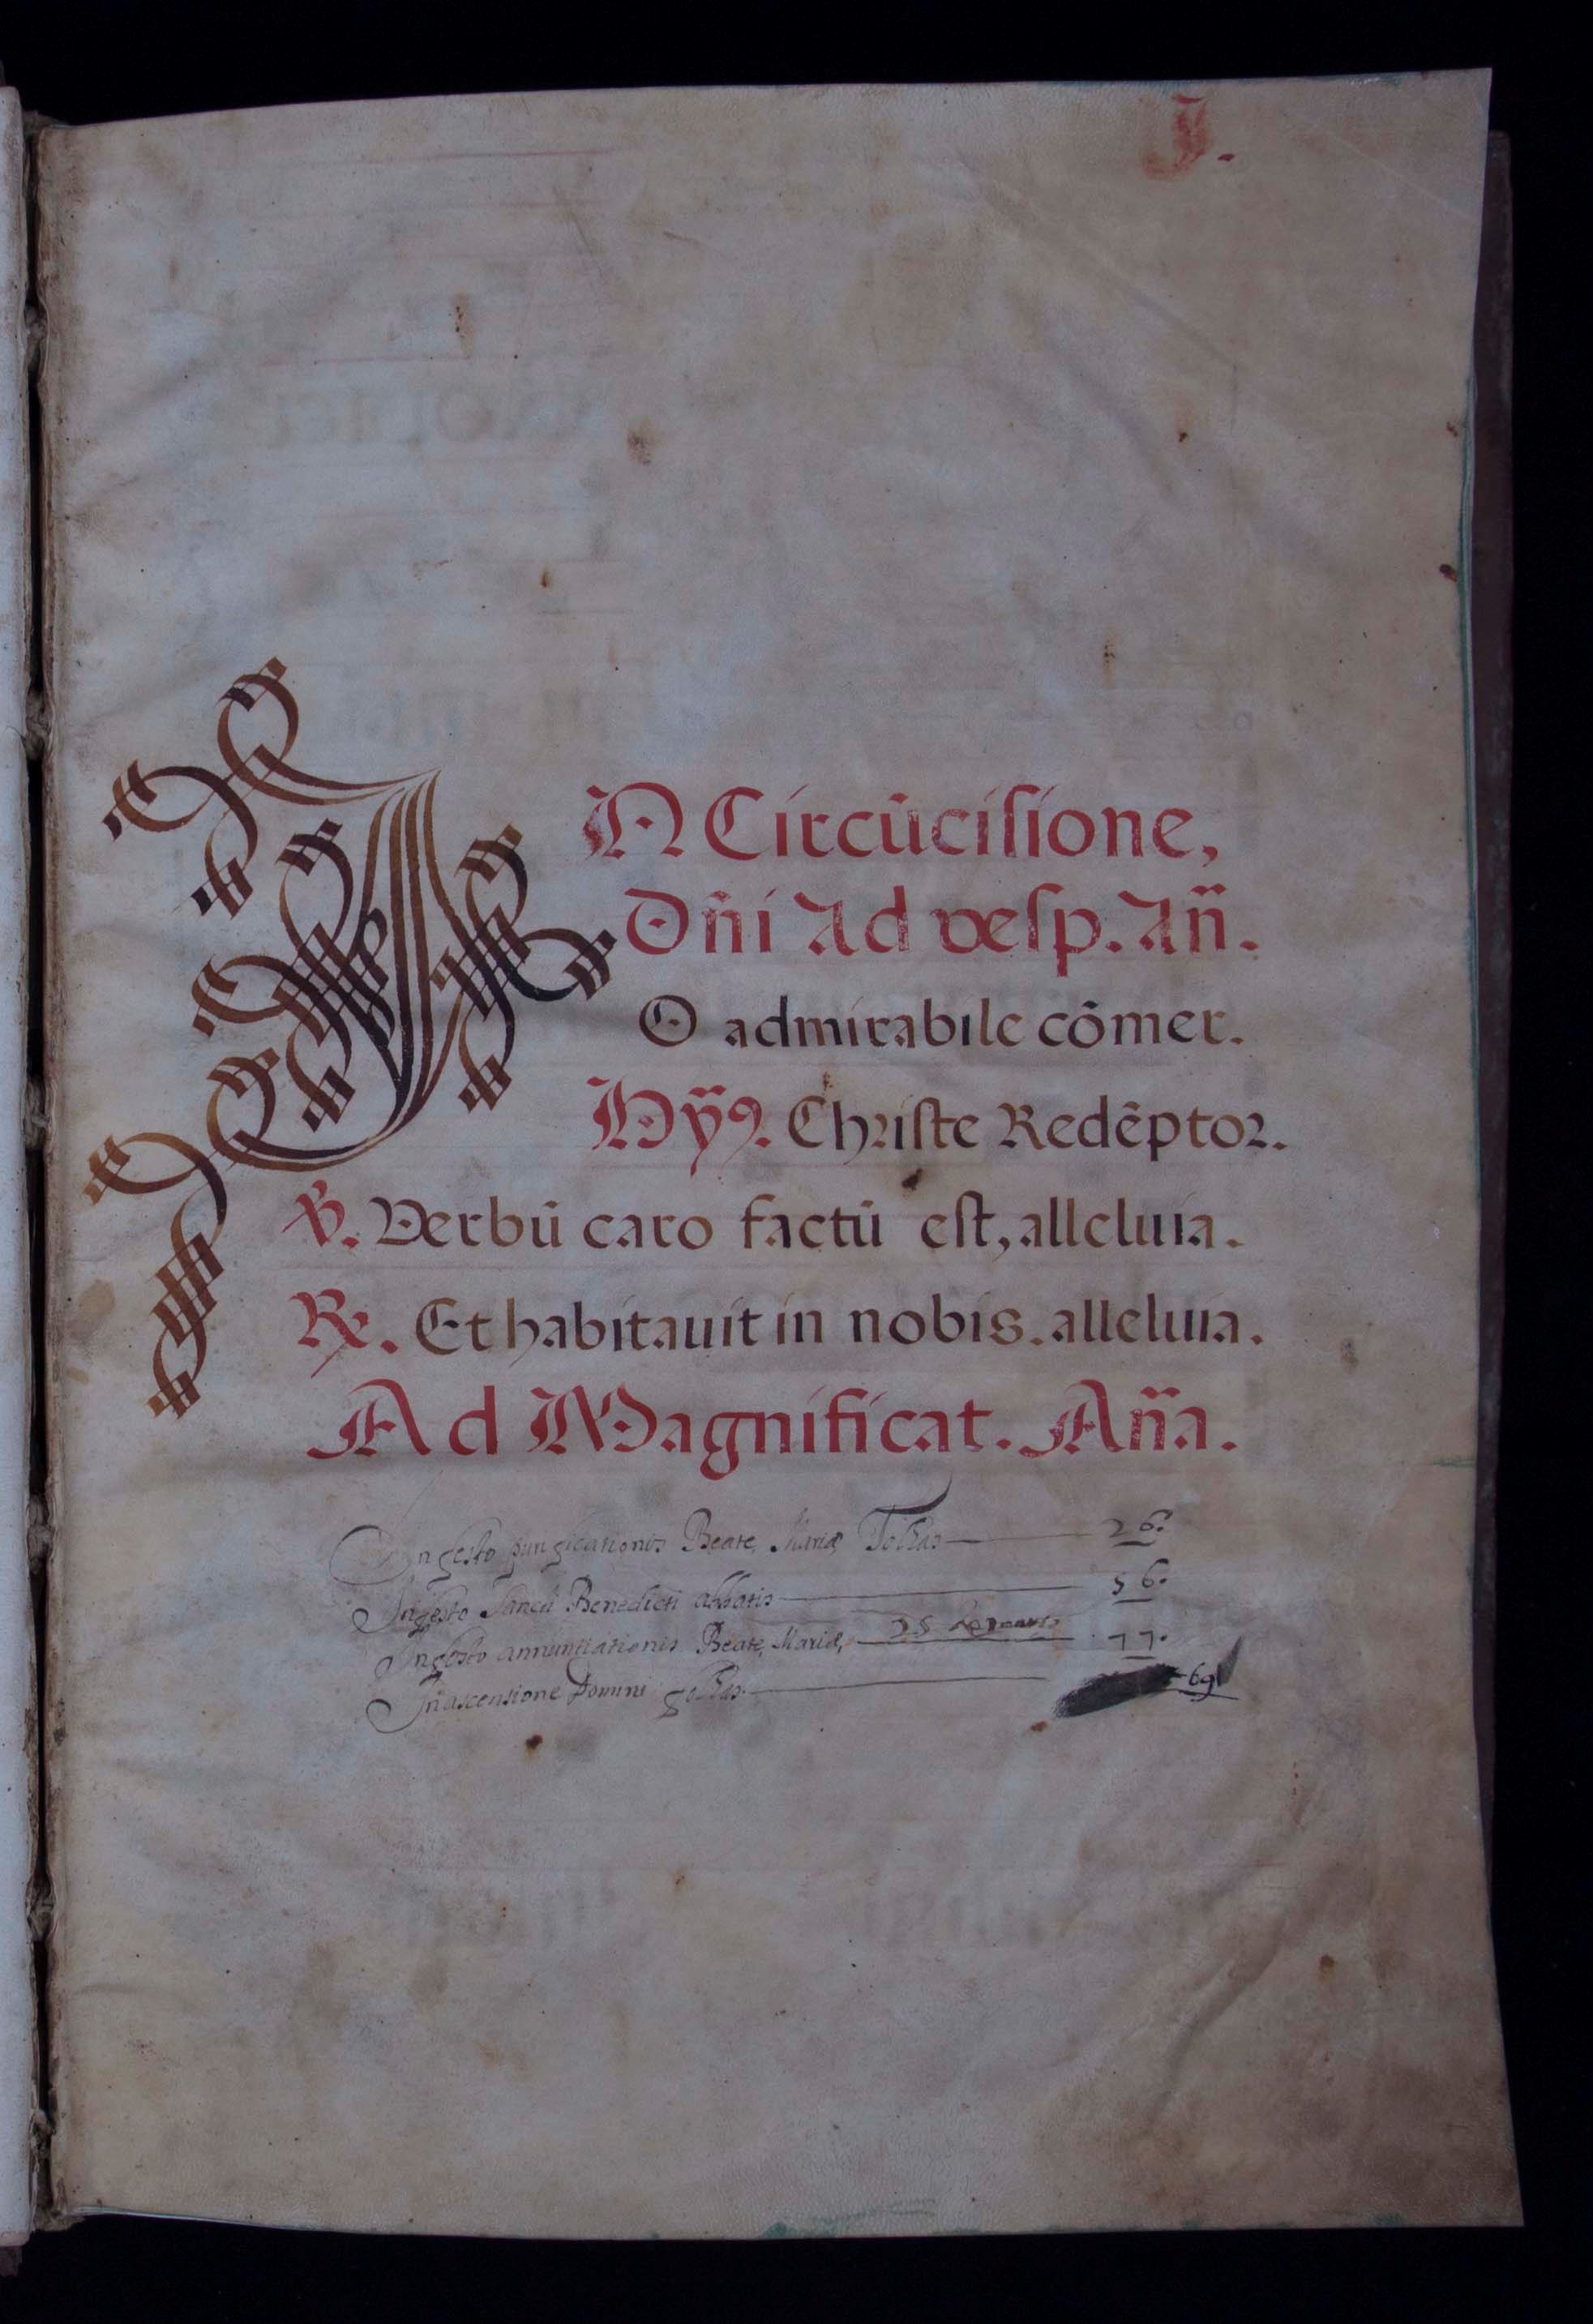 I.
IN Circūcisione,
Dñi Ad vesp. Añ.
O admirabile cōmer.
Hỹ9. Christe Redēptor.
℣. Verbū caro factū est, alleluia.
℟. Et habitauit in nobis. alleluia.
Ad Magnificat. Aña.
In festo purificationis Beate Mariæ Tolhas 26.
In festo Sancti Benedicti abbatis 56.
In festo annuntiationis Beate Mariæ, 25 77.
In ascensione Domini folhas 69